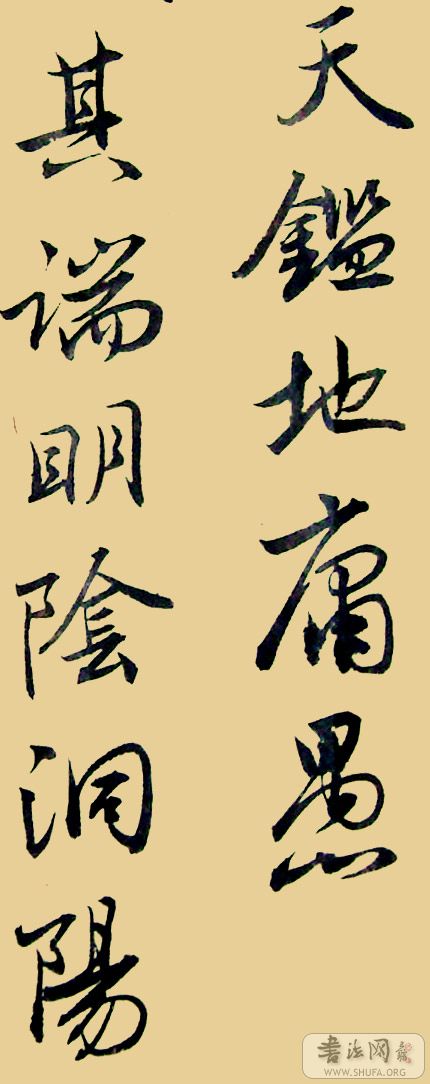 天鑑地庸愚
其端明陰洞陽
書法网
WWW.SHUFA.ORG